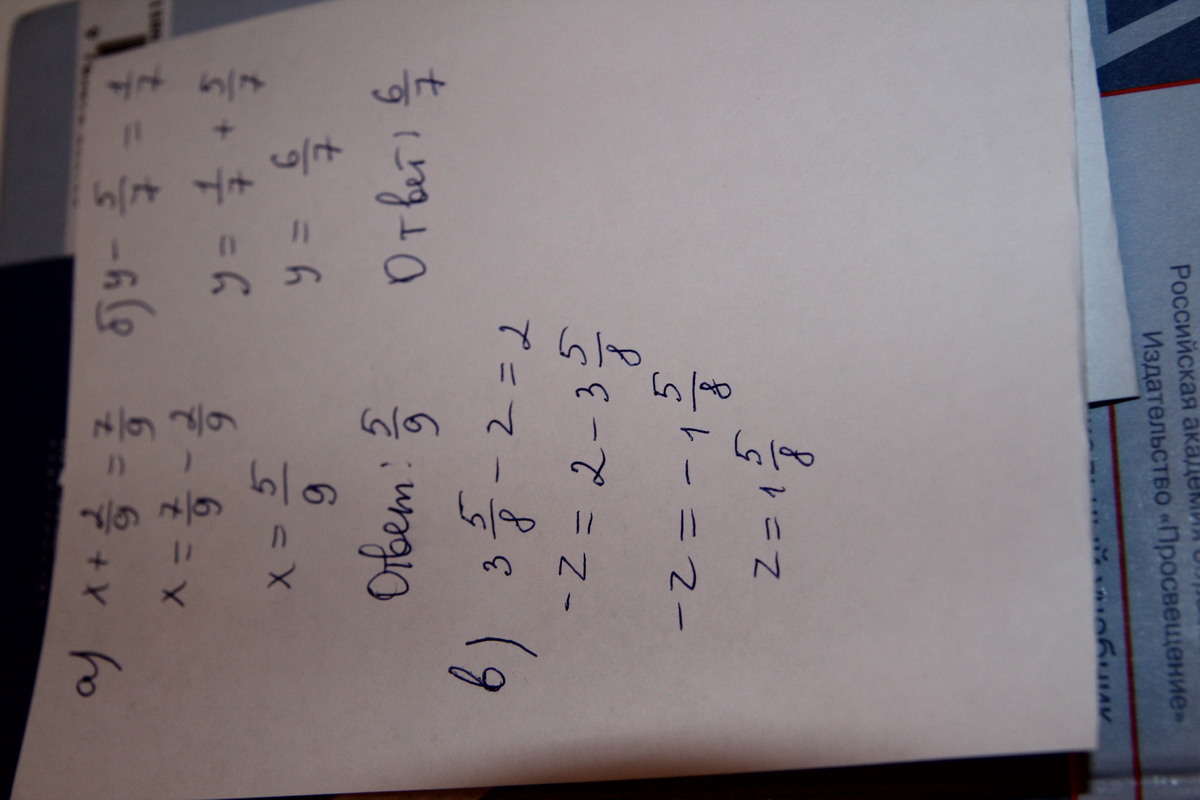 а) x + 2/9 = 7/9
x = 7/9 - 2/9
x = 5/9
Ответ: 5/9
б) y - 5/7 = 1/7
y = 1/7 + 5/7
y = 6/7
Ответ: 6/7
в) 3 5/8 - z = 2
-z = 2 - 3 5/8
-z = -1 5/8
z = 1 5/8
Российская академия
Издательство «Просвещение»